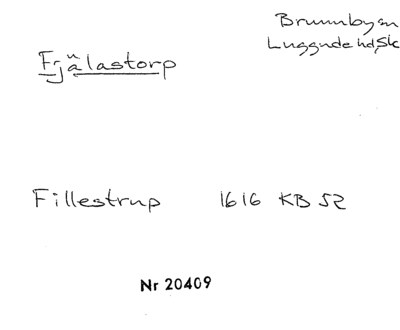 Fjälastorp
Brunnby sn
Luggude hd, Sk
Fillestrup 1616 KB 52
Nr 20409